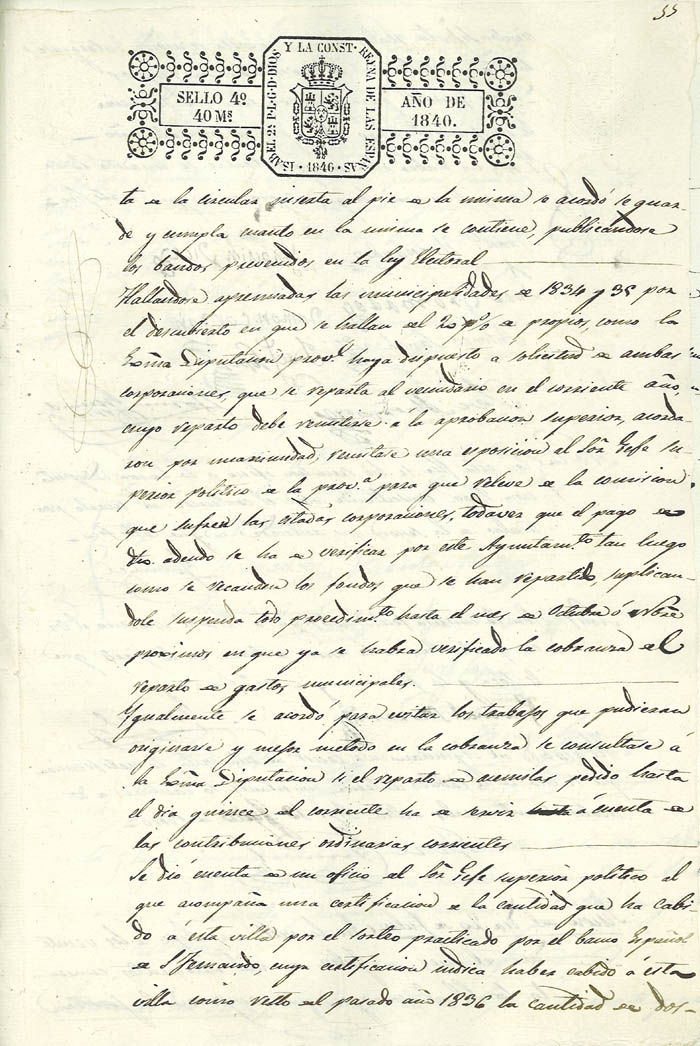 55
ISABEL 2ª P. L. G. D. DIOS Y LA CONST. REYNA DE LAS ESPAÑAS
SELLO 4º
40 Ms
AÑO DE
1840.
1840
ta de la circular inserta al pie de la misma se acordó se guar-
de y cumpla cuanto en la misma se contiene, publicandose
los bandos prevenidos en la ley Electoral
Hallandose apremiadas las municipalidades de 1834 y 35 por
el descubierto en que se hallan del 20 p% de propios, como la
Exma Diputacion provl haya dispuesto a solicitud de ambas
corporaciones, que se reparta al vecindario en el corriente año,
cuyo reparto debe remitirse á la aprobacion superior, acorda-
ron por unanimidad, remitase una esposicion al Sor Gefe su-
perior politico de la prova para que releve de la comision
que sufren las citadas corporaciones, todavez que el pago de
dho. adeudo se ha de verificar por este Ayuntamto tan luego
como se recauden los fondos que se han repartido, suplican-
dole suspenda todo procedimto hasta el mes de Octubre ó Nobre
proximos en que ya se habra verificado la cobranza del
reparto de gastos municipales.
Igualmente se acordó para evitar los trabajos que pudieran
originarse y mejor metodo en la cobranza se consultase á
la Exma Diputacion si el reparto de acemilas pedido hasta
el dia quince del corriente ha de servir á cuenta de
las contribuciones ordinarias corrientes
Se dió cuenta de un oficio del Sor Gefe superior politico al
que acompaña una certificacion de la cantidad que ha cabi-
do á esta villa por el sorteo practicado por el banco Español
de S. Fernando, cuya certificacion indica haber cabido á esta
villa como resto del pasado año 1836 la cantidad de dos-